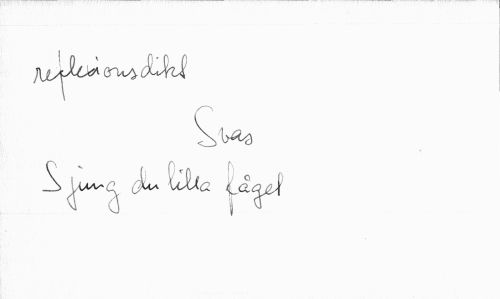 reflexionsdikt
Svas
Sjung du lilla fågel